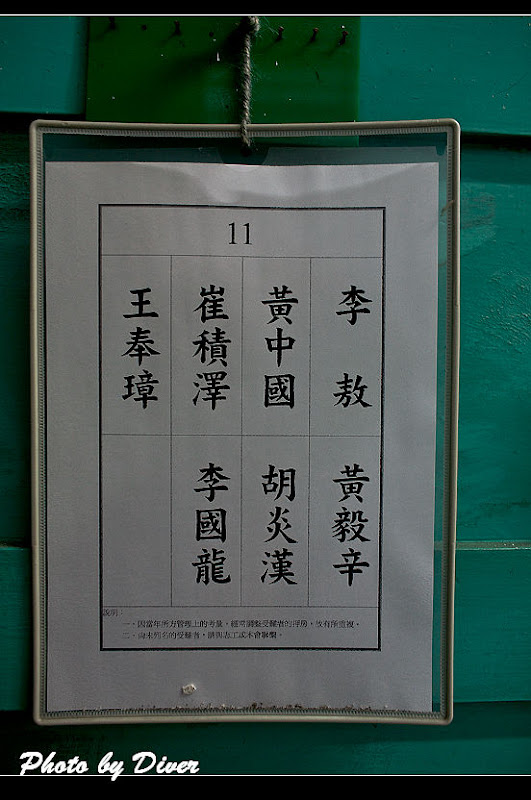 11
李 敖
黃毅辛
黃中國
胡炎漢
崔積澤
李國龍
王奉璋
說明：
一、因當年所方管理上的考量，經常調整受難者的押房，故有所重複。
二、尚未列名的受難者，請與志工或本會聯繫。
Photo by Diver